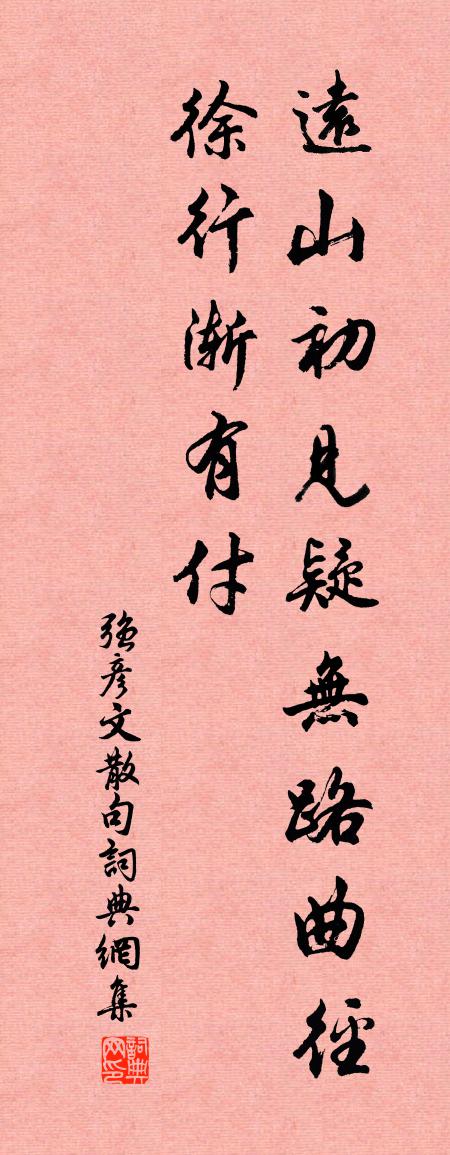 遠山初見疑無路曲徑
徐行漸有村
強彥文散句詞典網集
詞典
网印